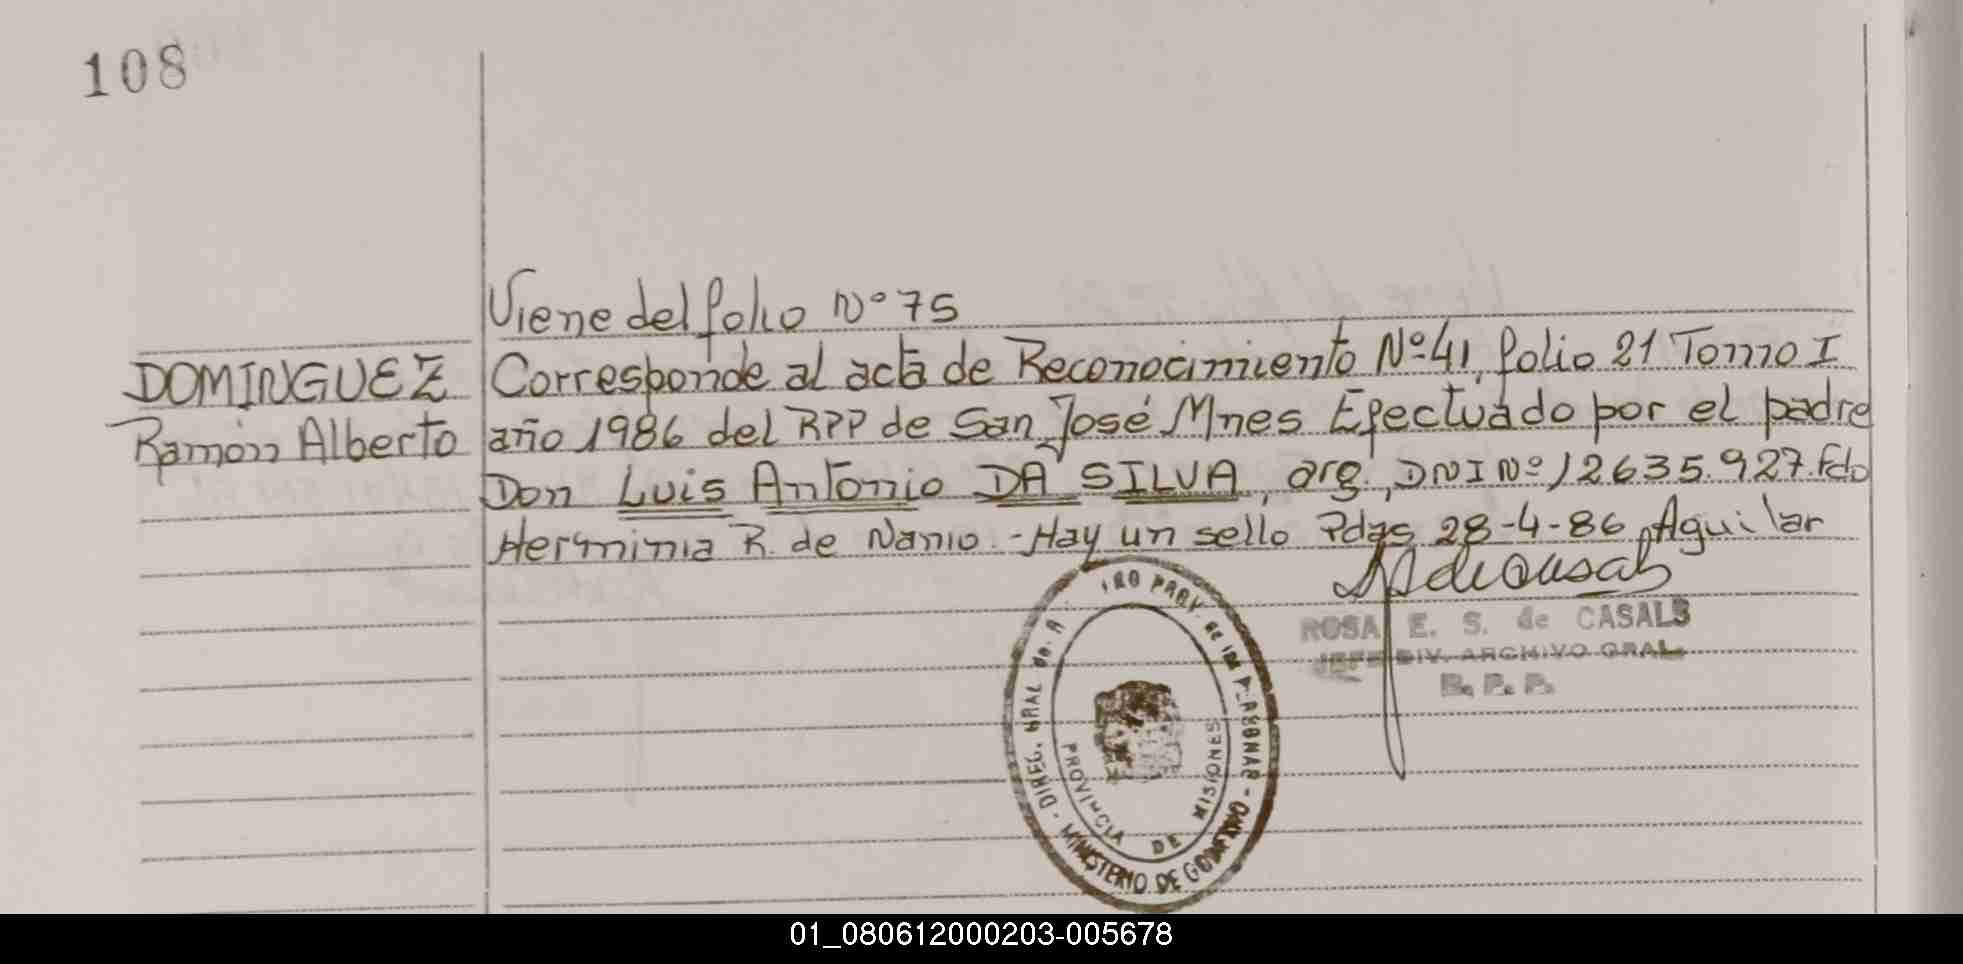 108
Viene del folio Nº 75
DOMINGUEZ
Ramón Alberto
Corresponde al acta de Reconocimiento Nº 41, folio 21 Tomo I
año 1986 del RPP de San José Mnes Efectuado por el padre
Don Luis Antonio DA SILVA, arg., DNI Nº 12635.927. fdo
Herminia R. de Nanio.-Hay un sello Pdas 28-4-86 Aguilar
ROSA E. S. de CASALS
JEFE DIV. ARCHIVO GRAL.
R. P. P.
DIREC. GRAL de
PROV. de las
MINISTERIO DE GOBIERNO
PROVINCIA DE MISIONES
01_080612000203-005678